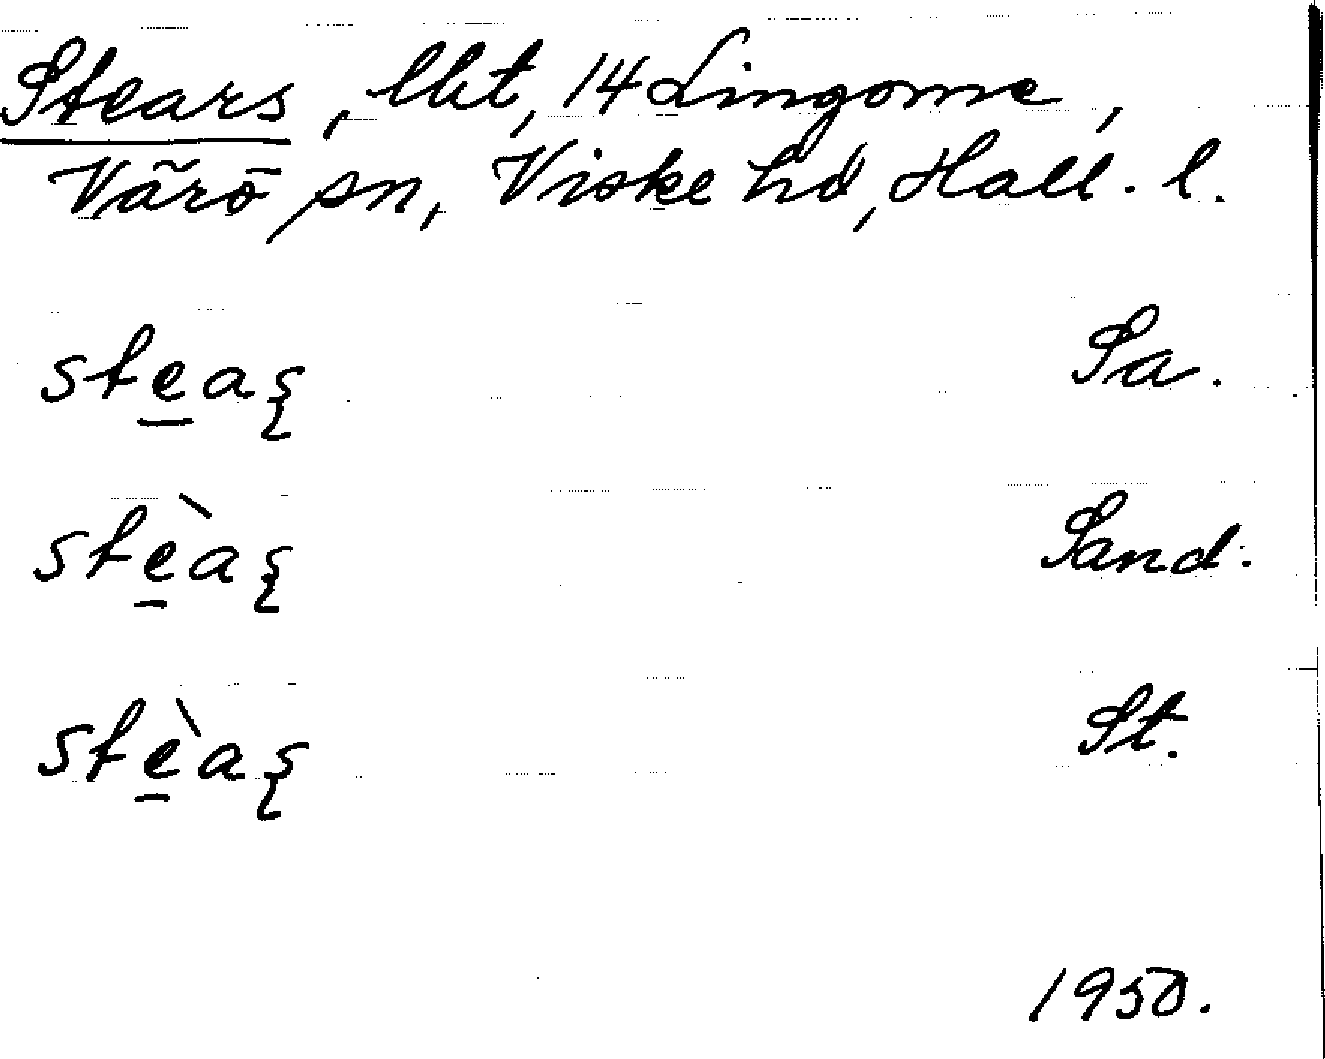 Stears, lht, 14 Lingome,
Värö sn, Viske hd, Hall. l.
ste̱aş Sa.
stè̱aş Sand.
stè̱aş St.
1950.